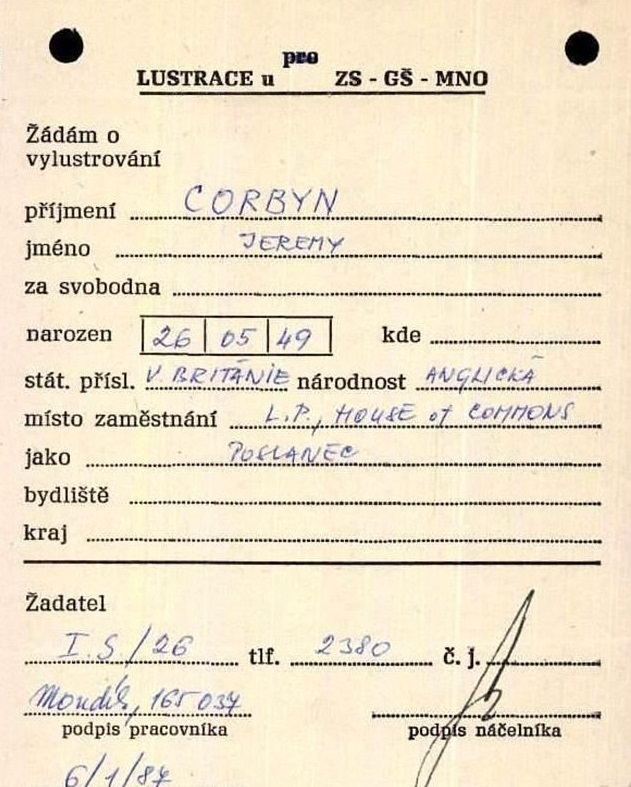 pro
LUSTRACE u ZS - GŠ - MNO
Žádám o
vylustrování
příjmení CORBYN
jméno JEREMY
za svobodna
narozen 26 05 49 kde
stát. přísl. V. BRITÁNIE národnost ANGLICKÁ
místo zaměstnání L.P., HOUSE of COMMONS
jako POSLANEC
bydliště
kraj
Žadatel
I.S/26 tlf. 2380 č. j.
165 037
podpis pracovníka podpis náčelníka
6/1/87